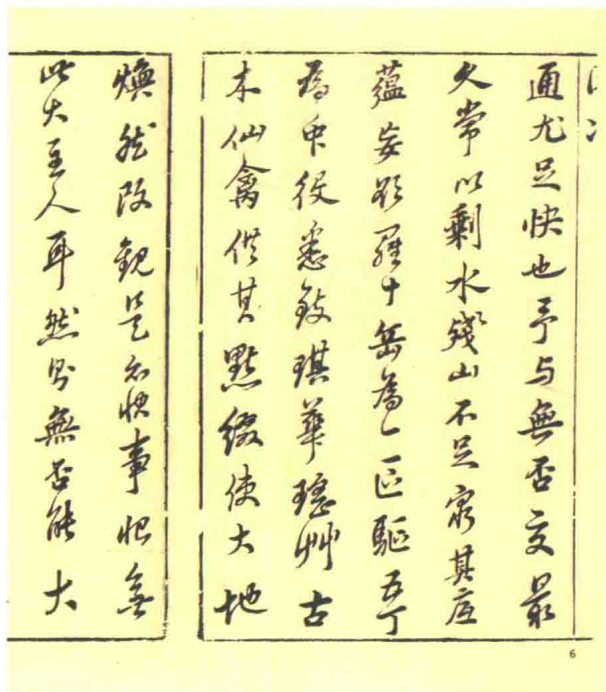 通尤足快也予与無否交最
久常以剩水殘山不足窮其底
蘊妄欲羅十岳為一區驅五丁
為衆役悉致琪華瑤艸古
木仙禽供其點綴使大地
煥然改觀是亦快事恨無
此大主人耳然則無否能大
6